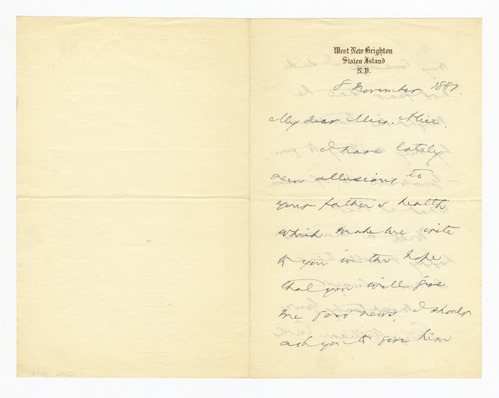 West New Brighton
Staten Island
N.Y.
8 November 1887.
My dear Miss Alice.
I have lately
seen allusions to
your father's health
which make me write
to you in the hope
that you will give
me good news. I should
ask you to give him